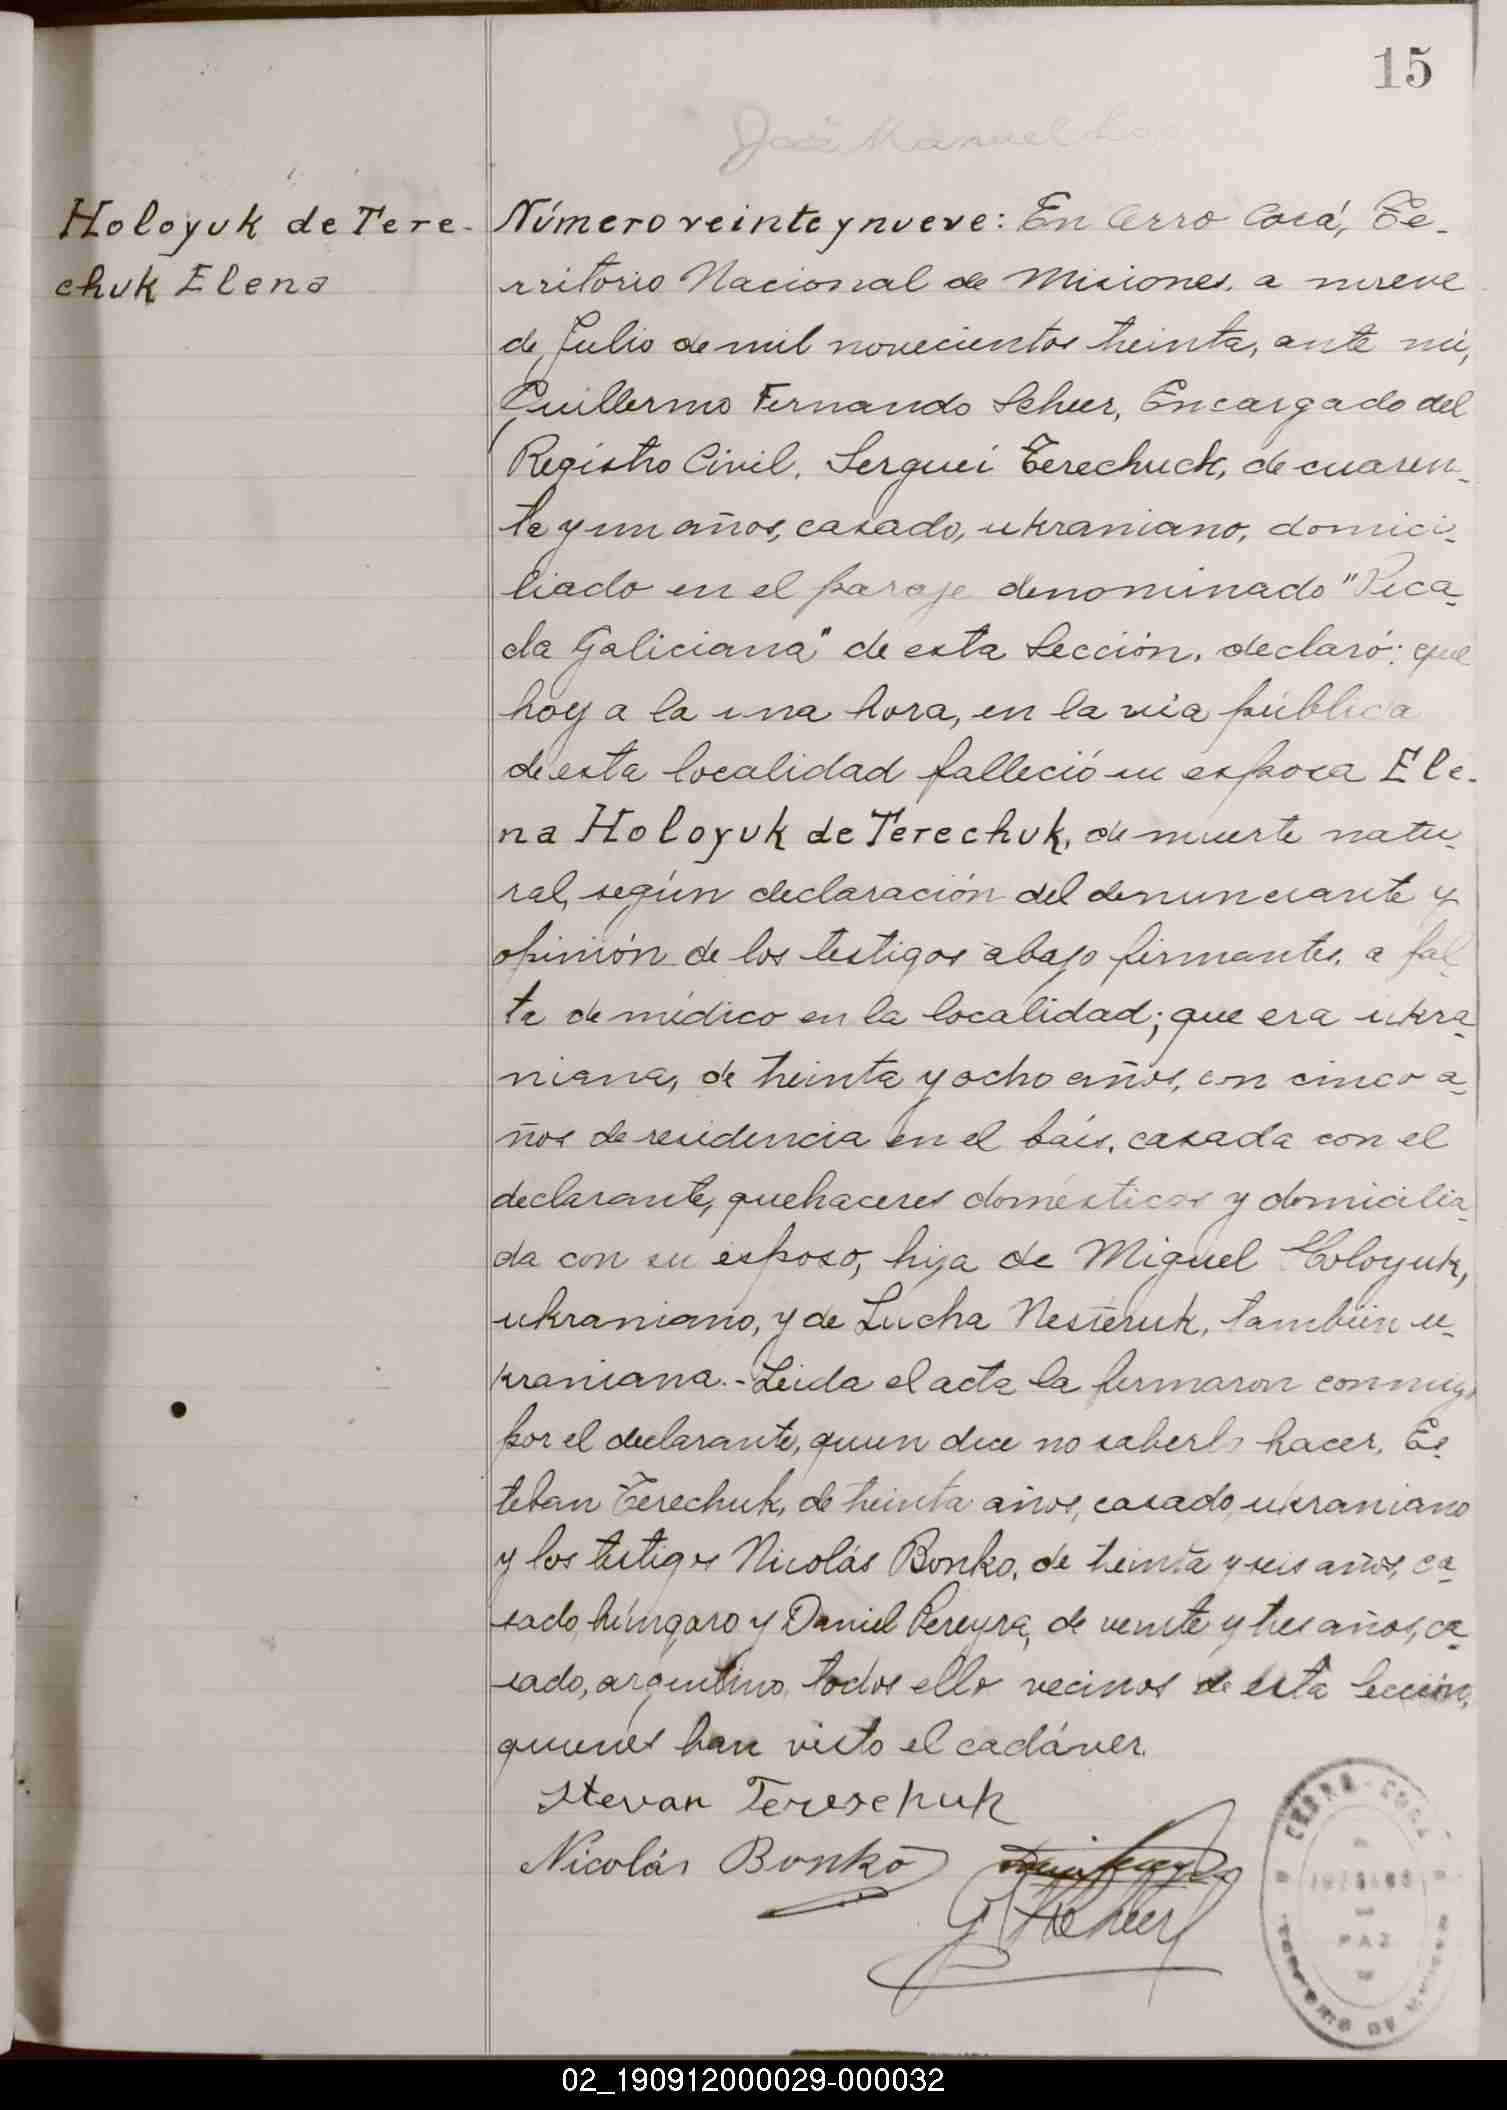 15
José Manuel
Holoyuk de Tere-
chuk Elena
Número veinte y nueve: En Cerro Corá, Te-
rritorio Nacional de Misiones, a nueve
de Julio de mil novecientos treinta, ante mí,
Guillermo Fernando Scheer, Encargado del
Registro Civil, Serguei Terechuck, de cuaren-
ta y un años, casado, ukraniano, domici-
liado en el paraje denominado "Pica-
da Galiciana" de esta Sección, declaró: que
hoy a la una hora, en la via pública
de esta localidad falleció su esposa Ele-
na Holoyuk de Terechuk, de muerte natu-
ral, según declaración del denunciante y
opinión de los testigos abajo firmantes, a fal-
ta de médico en la localidad; que era ukra-
niana, de treinta y ocho años, con cinco a-
ños de residencia en el país, casada con el
declarante, quehaceres domésticos y domicilia-
da con su esposo, hija de Miguel Holoyuk,
ukraniano, y de Lucha Nesteruk, también u-
kraniana.- Leida el acta la firmaron conmigo
por el declarante, quien dice no saberlo hacer, Es-
teban Terechuk, de treinta años, casado, ukraniano
y los testigos Nicolás Bonko, de treinta y seis años, ca-
sado, húngaro y Daniel Pereyra, de veinte y tres años, ca-
sado, argentino, todos ellos vecinos de esta Sección,
quienes han visto el cadáver.
Stevan Tereschuk
Nicolás Bonko
G Scheer
CERRO-CORÁ
JUZGADO
DE
PAZ
02_190912000029-000032